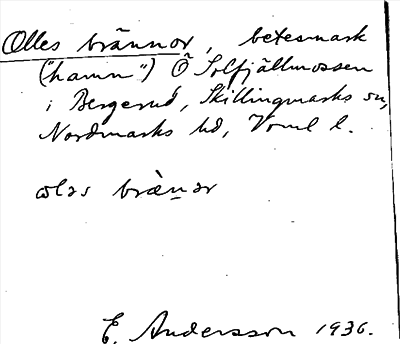 Olles brännor, betesmark
("hamn") Ö Solfjällmossen
i Bergerud, Skillingmarks sn,
Nordmarks hd, Vrml l.
ωləs brä̀n̲ər
E. Andersson 1936.